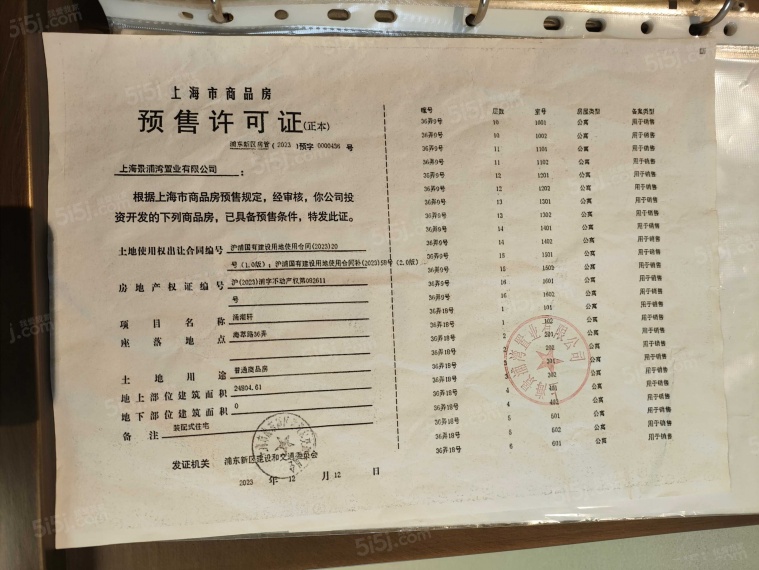 上海市商品房
预售许可证(正本)
浦东新区房管(2023)预字0000456号
上海景浦湾置业有限公司:
根据上海市商品房预售规定,经审核,你公司投
资开发的下列商品房,已具备预售条件,特发此证。
土地使用权出让合同编号 沪浦国有建设用地使用合同(2023)20
号(1.0版);沪浦国有建设用地使用合同补(2023)58号(2.0版)
房地产权证编号 沪(2023)浦字不动产权第092611
号
项目名称
座落地点 海萃路36弄
土地用途 普通商品房
地上部位建筑面积 24804.61
地下部位建筑面积 0
备注 装配式住宅
发证机关 浦东新区建设和交通委员会
2023 年 12 月 12 日
幢号 层数 室号 房屋类型 备案类型
36弄9号 10 1001 公寓 用于销售
36弄9号 10 1002 公寓 用于销售
36弄9号 11 1101 公寓 用于销售
36弄9号 11 1102 公寓 用于销售
36弄9号 12 1201 公寓 用于销售
36弄9号 12 1202 公寓 用于销售
36弄9号 13 1301 公寓 用于销售
36弄9号 13 1302 公寓 用于销售
36弄9号 14 1401 公寓 用于销售
36弄9号 14 1402 公寓 用于销售
36弄9号 15 1501 公寓 用于销售
36弄9号 15 1502 公寓 用于销售
36弄9号 16 1601 公寓 用于销售
36弄9号 16 1602 公寓 用于销售
36弄18号 1 101 公寓 用于销售
36弄18号 1 102 公寓 用于销售
36弄18号 2 201 公寓 用于销售
36弄18号 2 202 公寓 用于销售
36弄18号 3 301 公寓 用于销售
36弄18号 3 302 公寓 用于销售
36弄18号 4 401 公寓 用于销售
36弄18号 4 402 公寓 用于销售
36弄18号 5 501 公寓 用于销售
36弄18号 5 502 公寓 用于销售
36弄18号 6 601 公寓 用于销售
上海景浦湾置业有限公司
5i5j.com
我爱我家